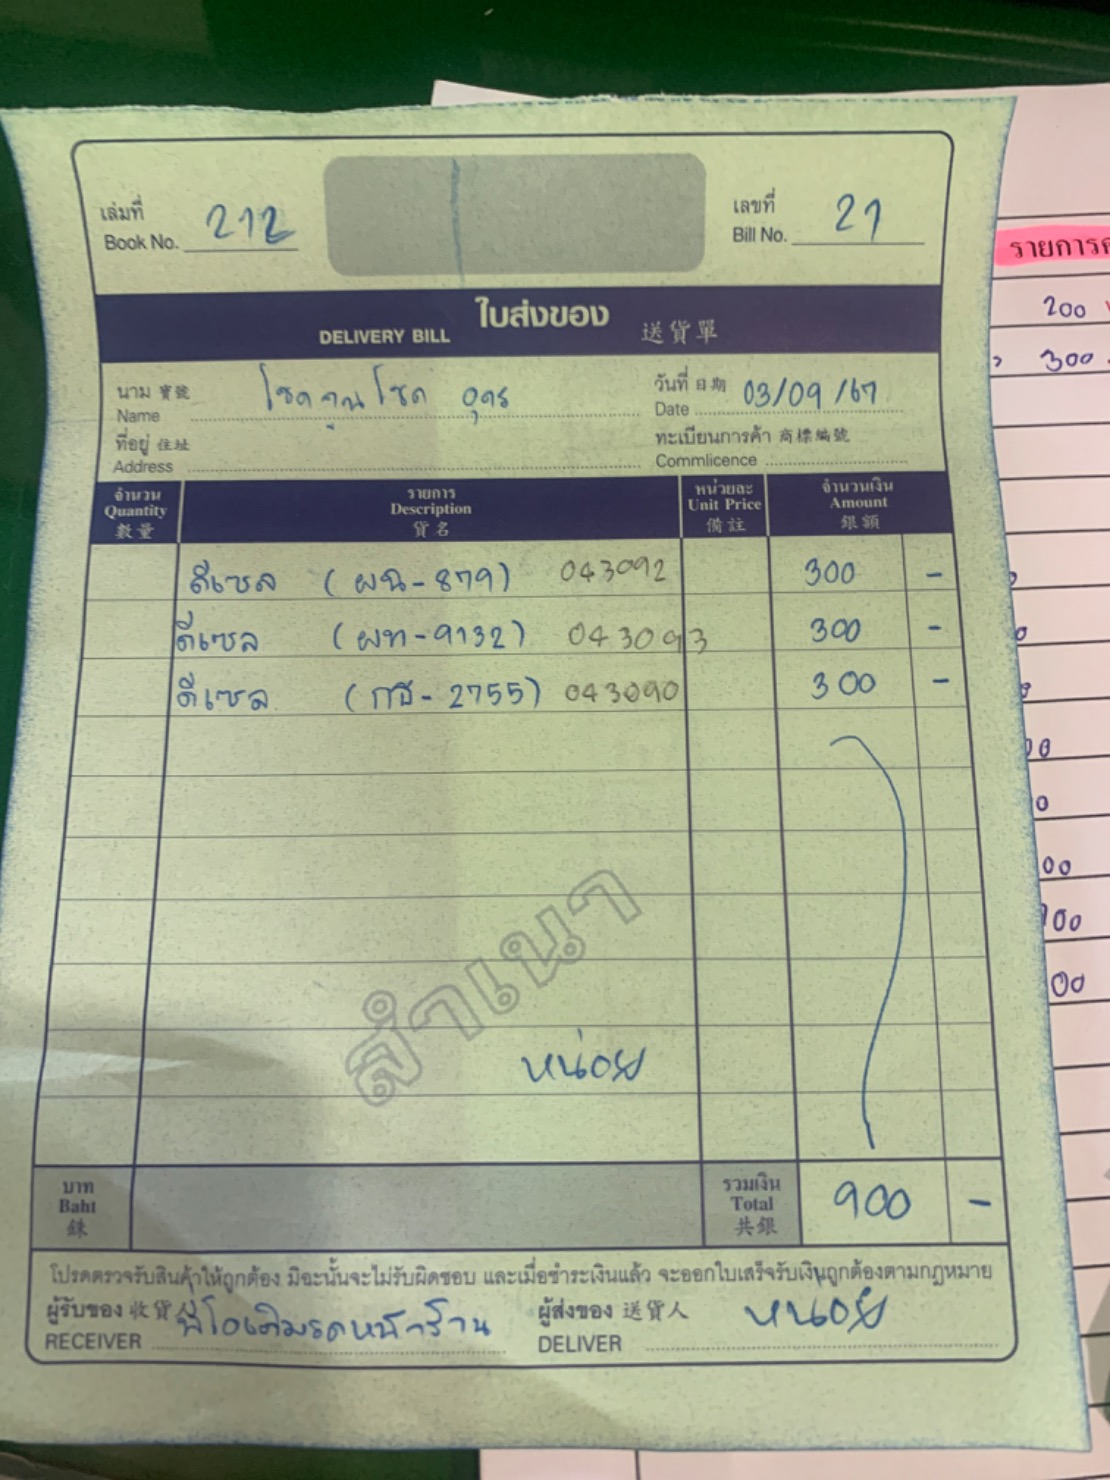 เล่มที่
Book No. 212
เลขที่
Bill No. 21
ใบส่งของ
DELIVERY BILL 送貨單
นาม 寶號
Name โชคคูนโชค อุดร
วันที่ 日期
Date 03/09/67
ที่อยู่ 住址
Address
ทะเบียนการค้า 商標編號
Commlicence
จำนวน
Quantity
數量
รายการ
Description
貨名
หน่วยละ
Unit Price
備註
จำนวนเงิน
Amount
銀額
ดีเซล (ผฉ-879) 043092 300 -
ดีเซล (ผท-9132) 043093 300 -
ดีเซล (กธ-2755) 043090 300 -
สำเนา
หน่อย
บาท
Baht
銖
รวมเงิน
Total
共銀
900 -
โปรดตรวจรับสินค้าให้ถูกต้อง มิฉะนั้นจะไม่รับผิดชอบ และเมื่อชำระเงินแล้ว จะออกใบเสร็จรับเงินถูกต้องตามกฎหมาย
ผู้รับของ 收貨人
RECEIVER พี่โอเติมรถหน้าร้าน
ผู้ส่งของ 送貨人
DELIVER หน่อย
200
300